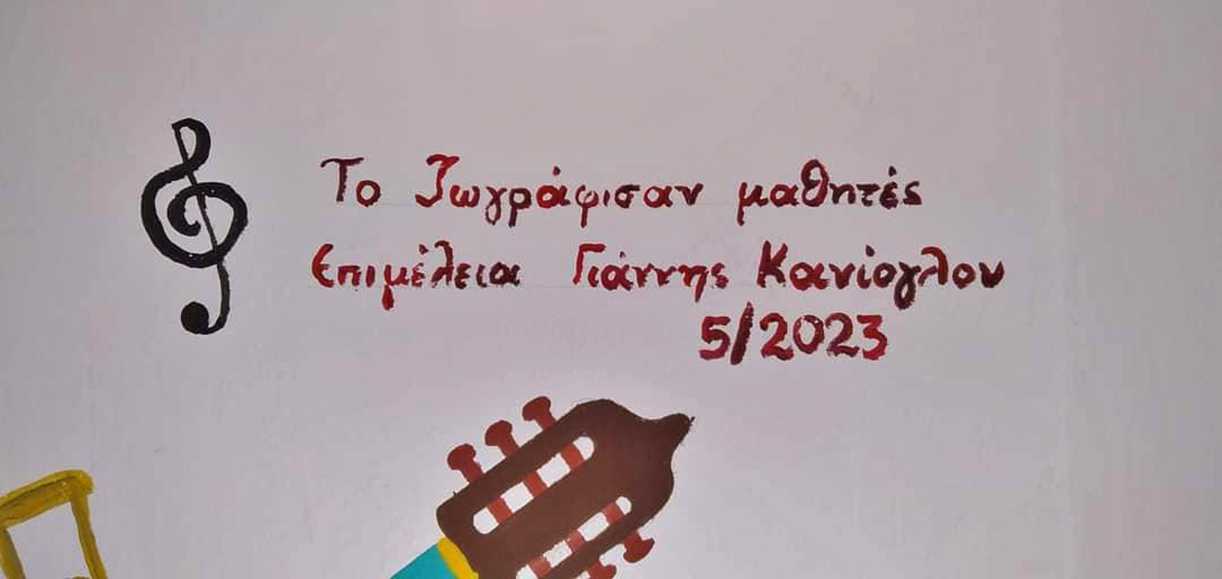 Το Ζωγράφισαν μαθητές
Επιμέλεια Γιάννης Κανίογλου
5/2023